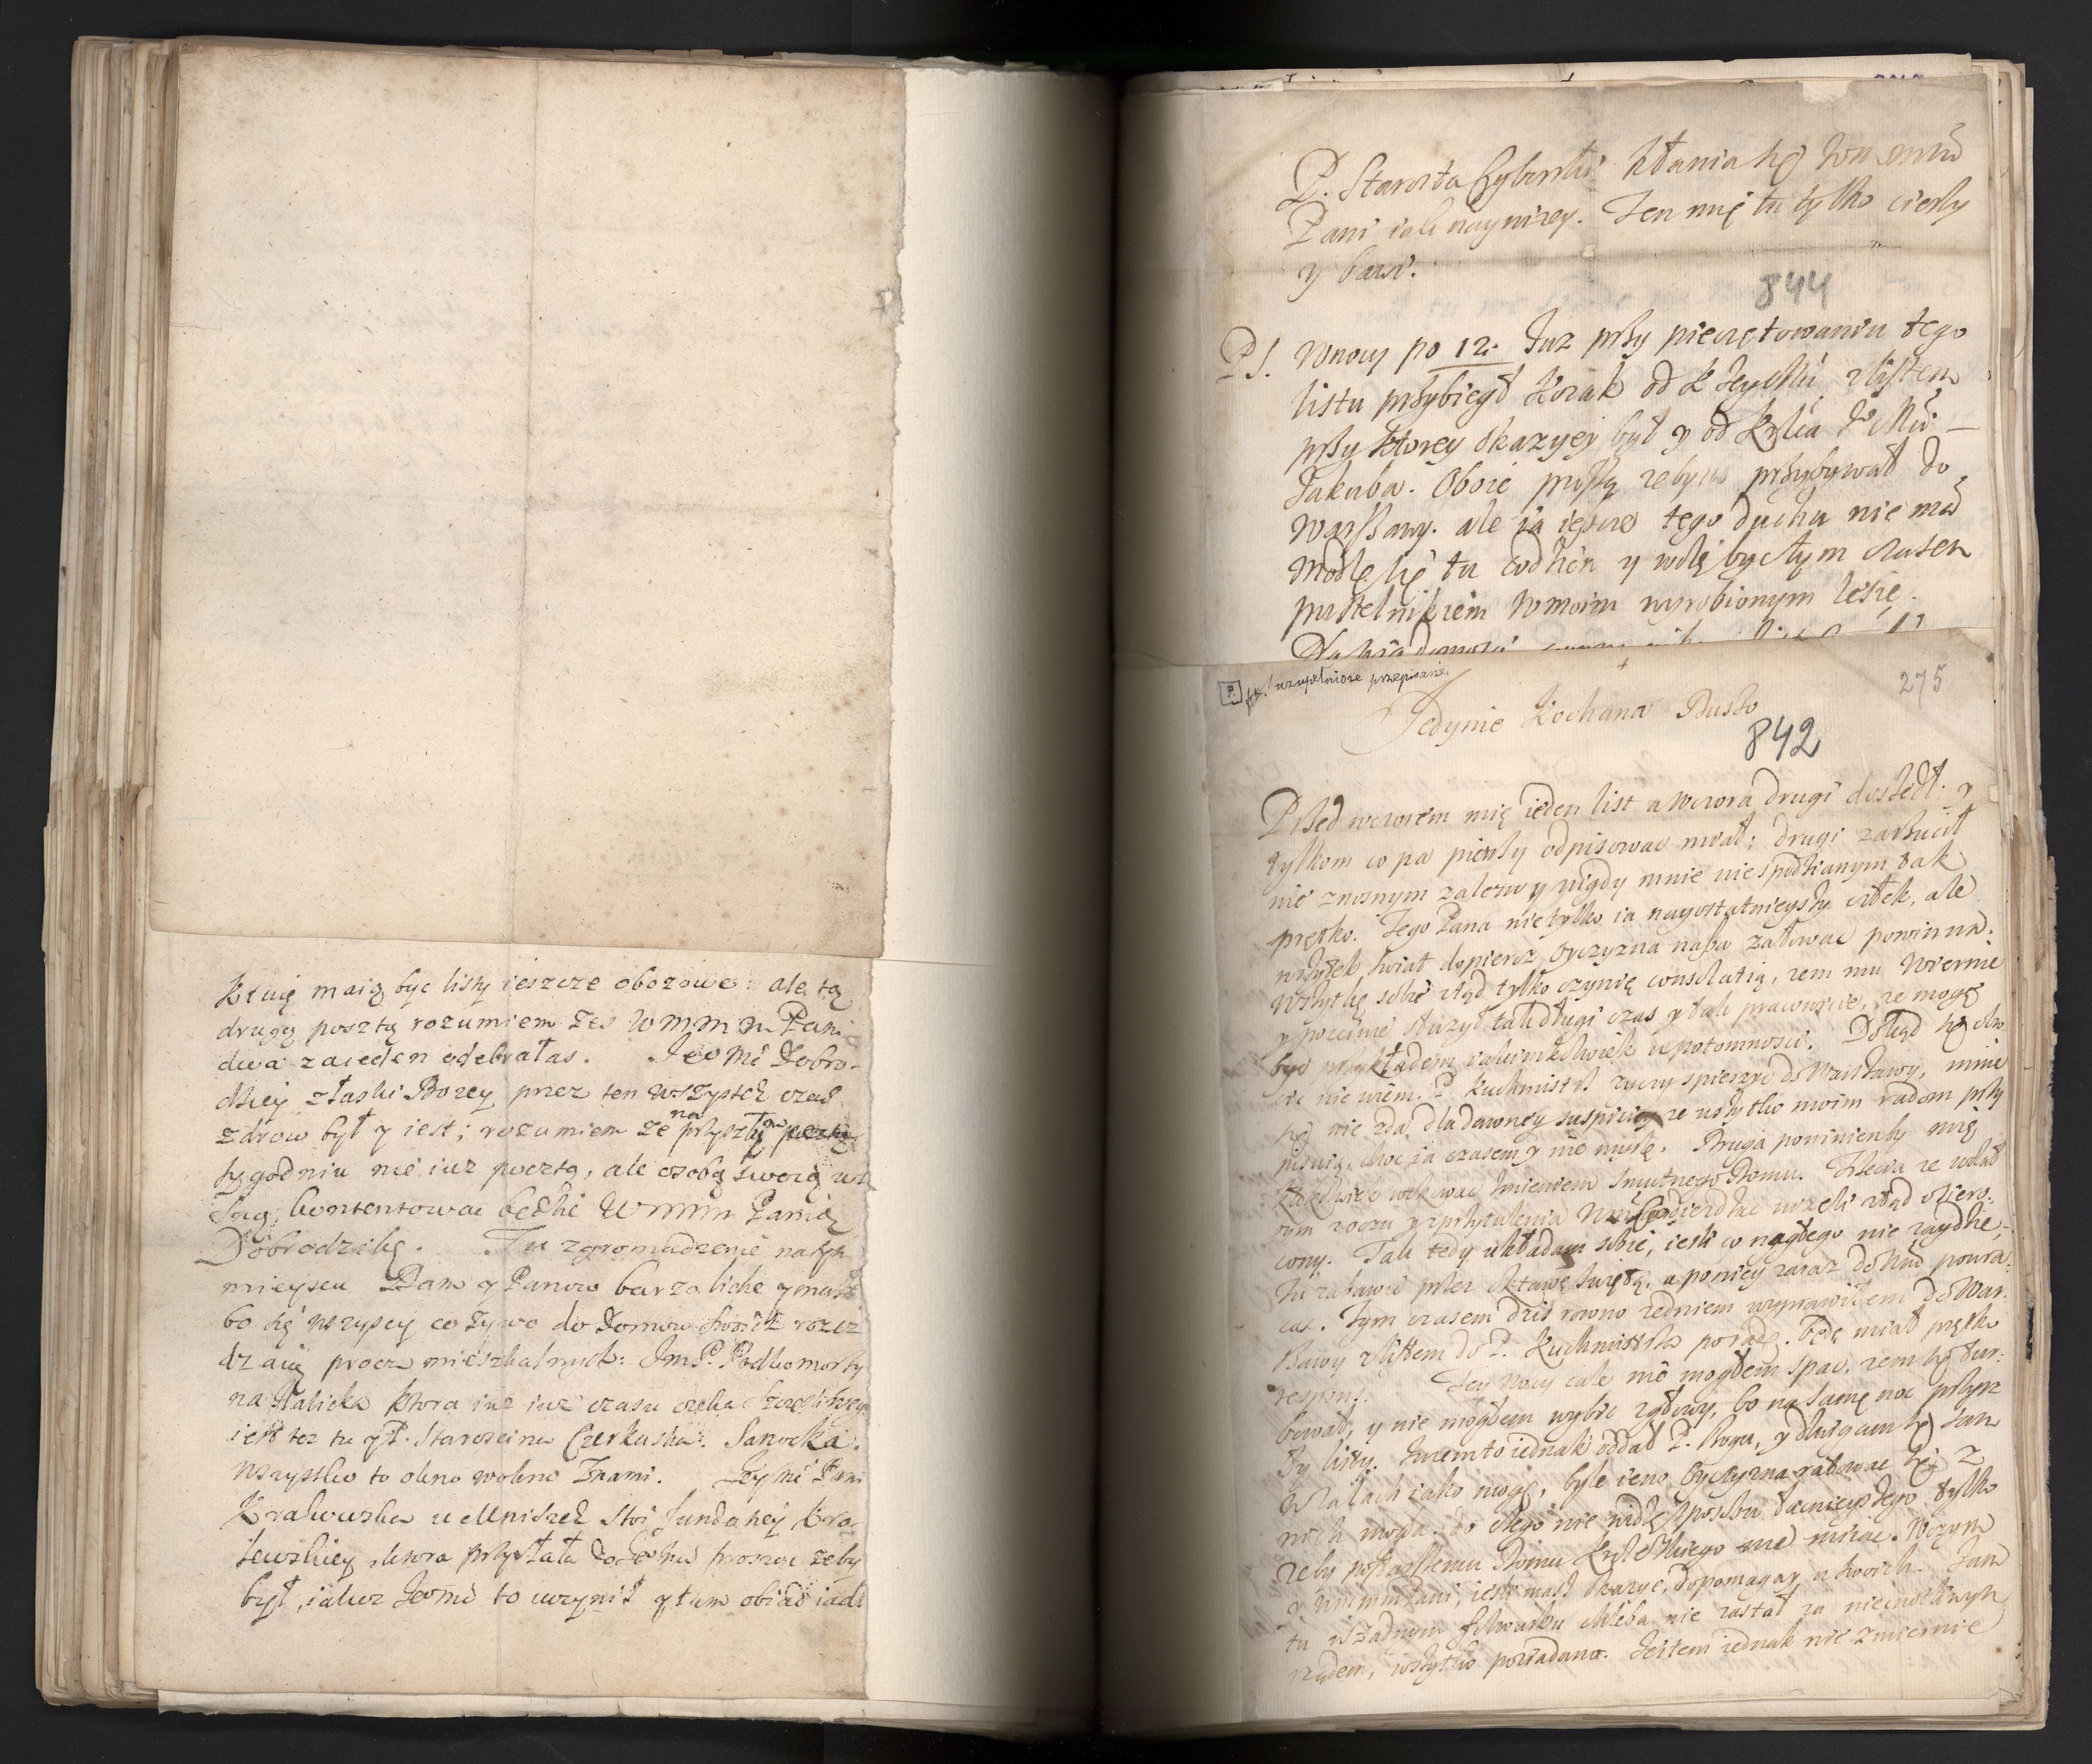 kturę maią byc listy ieszcze obozowe: ale tą
drugą pocztą rozumiem żes Wmm m Pani
dwa za ieden odebrałas. Jeo Mć Dobro-
dziey z łaski Bozey przez ten wszystek czas
zdrow był y iest; rozumiem ze na przyszłym
tygodniu nie iuz pocztą, ale osobą swoią
kontentowac będzie Wmm Panią
Dobrodziką. Tu zgromadzenie na tym
mieyscu Dam y Panow barzo liche y małe
bo się wszyscy co zywo do Domow swoich rozez
dzaią procz mieszkalnych: Jm P. Podkomorzy
na Halicka ktora iuz iuz czasu czeka
iest tez tu y P. Staroscina Czerkaska. Sanocka.
wszystko to okno wokno z nami. Jeymć Pani
Krakowska u Mniszek stoi
ktora przysłała do Jeo Mci prosząc zeby
był, iakoz Jeomć to uczynił y tam obiad iadł
P. Starosta kłania się Wm
Pani iak naynizey. Ten mię tu tylko cieszy
y bawi.
844
PS. W nocy po 12. Juz przy pieczętowaniu tego
listu przybiegł Kozak od z listem
przy ktorey okazyey był y od
Jakuba. Oboie piszą zebym przybywał do
Warszawy. ale ia ieszcze tego ducha nie mam
modlę się tu codzien y wolę byc tym czasem
pustelnikiem w moim wyrobionym lesie.
P. uzupełnione przepisanie.
275
Jedynie Kochana Dusko
842
Przed wczorem mię ieden list a wczora drugi doszedł: y
tylkom co na pierszy odpisowac miał; drugi zarzucił
nie znosnym zalem y nigdy mnie niespodzianym tak
prętko. Tego Pana nie tylko ia nayostatnieyszy człek, ale
wszytek swiat dopieroz Oyczyzna nasza załowac powinna.
Wszytkę sobie ztąd tylko czynię consolatią, zem mu wiernie
y poczciwie słuzył tak długi czas y tak pracowicie, ze mogę
byc przykładem iakimkolwiek u potomnosci. Dokąd się obro
cic nie wiem. P. Kuchmistrz zyczy spieszyc do Warszawy, mnie
się nie zda, dla dawney suspiciey ze wszytko moim radom przy
pisuią, choc ia czasem y nie myslę. Druga powinienby mię
ktokolwiek wokowac imieniem smutnego Domu. Trzecia ze wolał
bym zoczu
cony. Tak tedy układam sobie, iesli co nagłego nie zaydzie,
tu zabawic przez Oktawę swiętą, a po niey zaraz do Was powra
cac. Tym czasem dzis rowno ze dniem wyprawiłem do War-
szawy z listem do P. Kuchmistrza po radę. Będę miał prętko
respons. Tey nocy cale nie mogłem spac, zem się tur-
bował, y nie mogłem wybic z głowy, bo na samę noc przysz
ły listy. Iuzem to iednak oddał P. Bogu, y dzwigam się sam
w zalach iako mogę, byle ieno Oyczyzna ratowac się z
nich mogła. do czego nie widzę sposobu łacnieyszego tylko
zeby po starszemu Domu Krolewskiego nie miiac. W czym
y Wm mm Pani, iesli masz okazyę, dopomagay u swoich. Jam
tu w zadnym folwarku chleba nie zastał za niecnotliwym
rządem, wszytko pozradano. Jestem iednak nie zmiernie